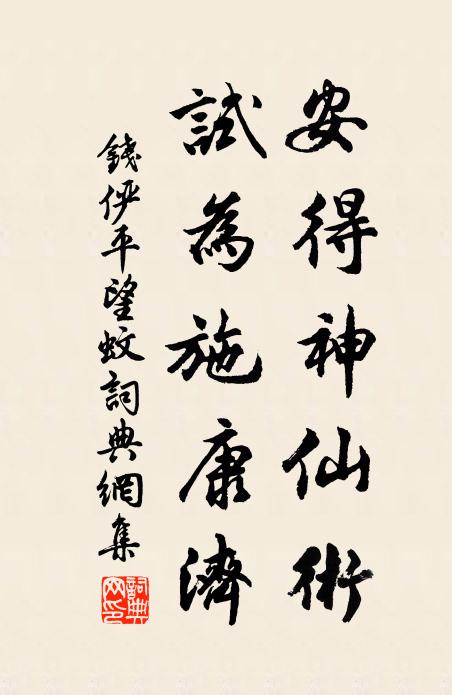 安得神仙術
試為施康濟
錢俨平望蚊詞典網集
詞典网印